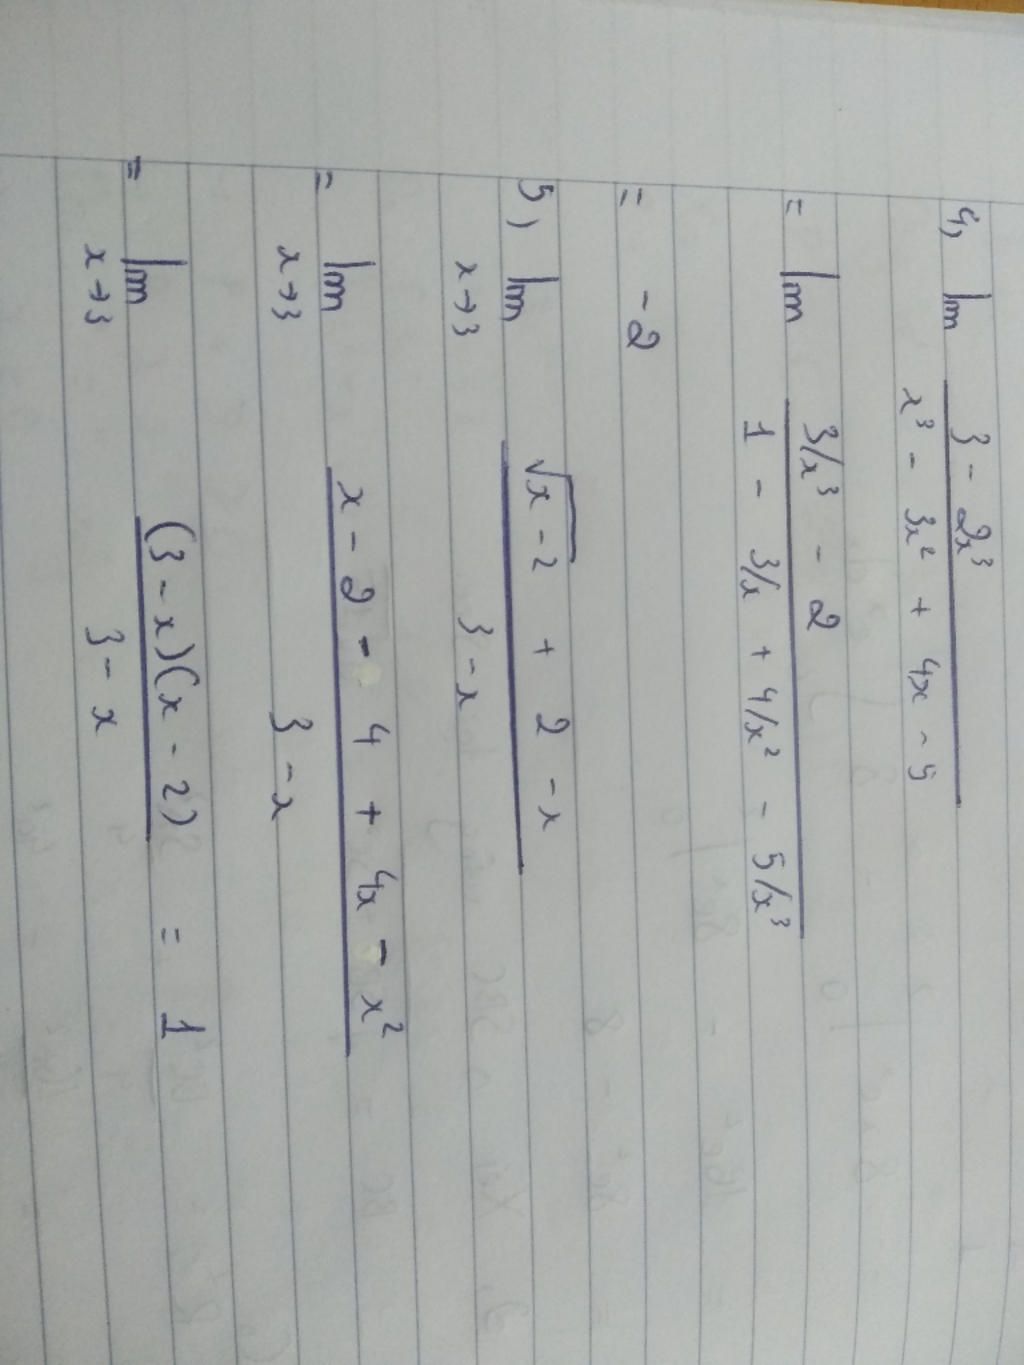 4, lim (3 - 2x³)/(x³ - 3x² + 4x - 5)
= lim (3/x³ - 2)/(1 - 3/x + 4/x² - 5/x³)
= -2
5, lim x→3 (√(x - 2) + 2 - x)/(3 - x)
= lim x→3 (x - 2 - 4 + 4x - x²)/(3 - x)
= lim x→3 ((3 - x)(x - 2))/(3 - x) = 1